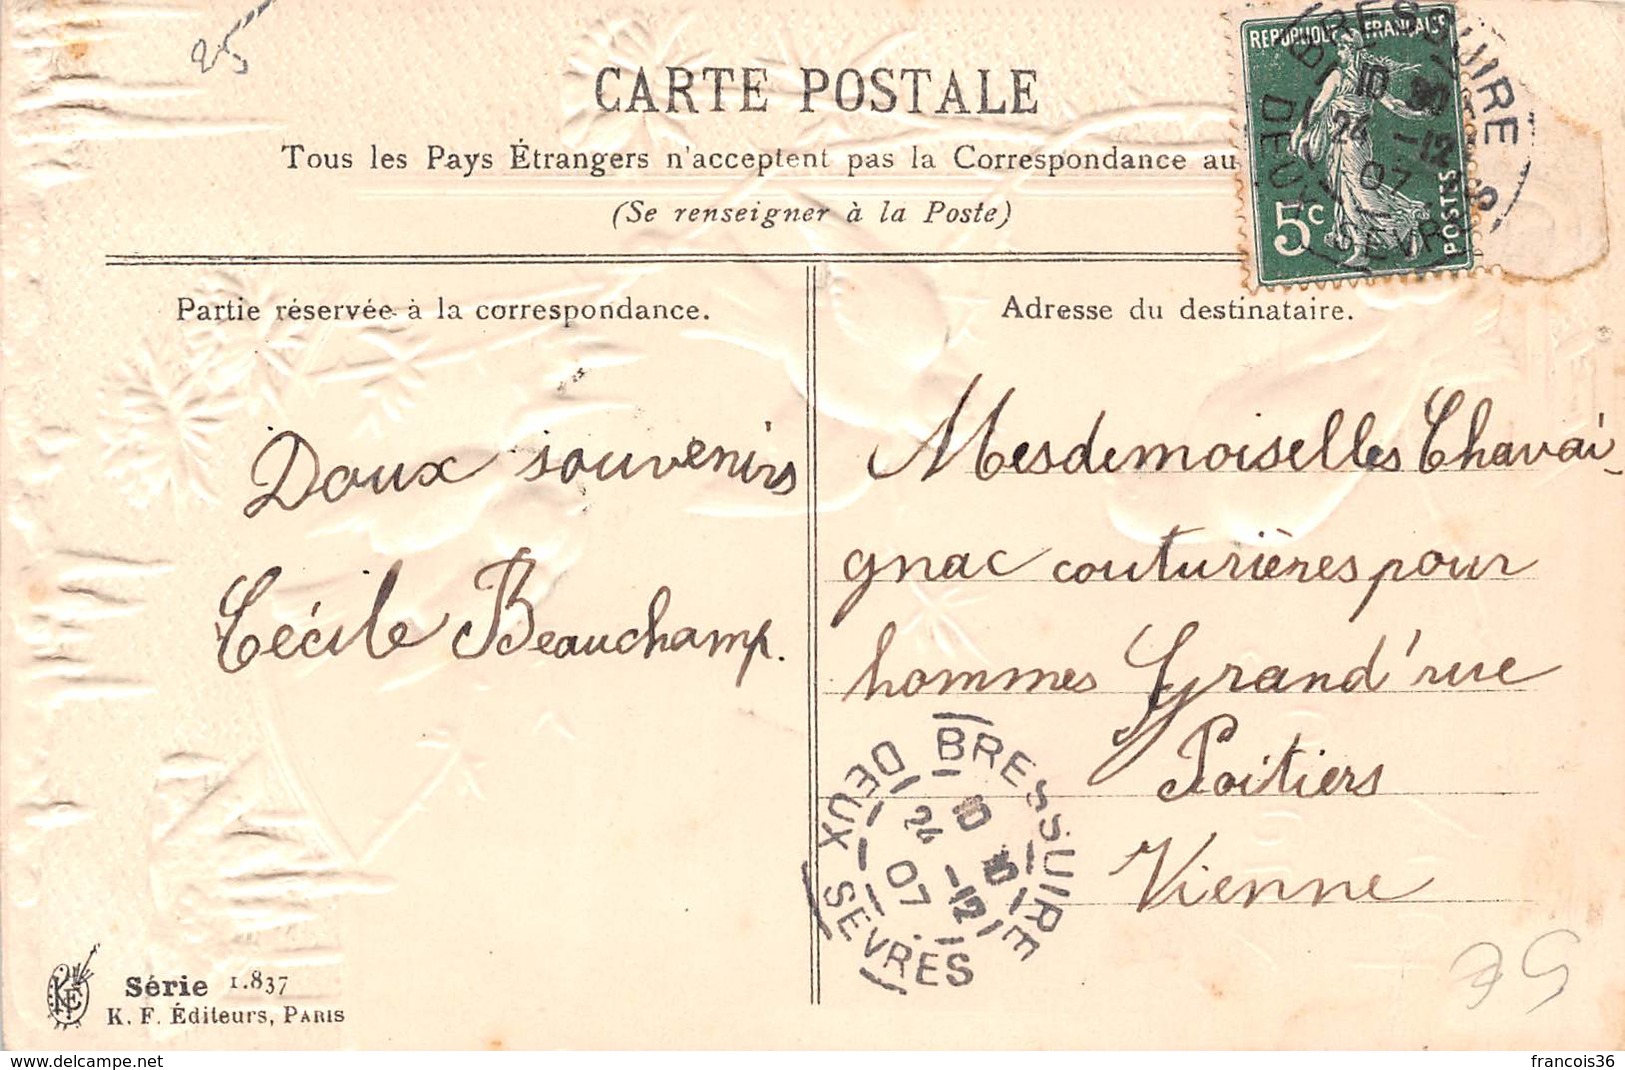 25
CARTE POSTALE
Tous les Pays Étrangers n'acceptent pas la Correspondance au
(Se renseigner à la Poste)
REPUBLIQUE FRANÇAISE
5c
POSTES
BRESSUIRE
10
24 -12
07
DEUX SEVRES
Partie réservée à la correspondance.
Adresse du destinataire.
Doux souvenirs
Cécile Beauchamp.
Mesdemoiselles Chavai-
gnac couturières pour
hommes Grand'rue
Poitiers
Vienne
BRESSUIRE
10 10
24 -12
07
DEUX SEVRES
KF
Série 1.837
K. F. Éditeurs, PARIS
www.delcampe.net
francois36